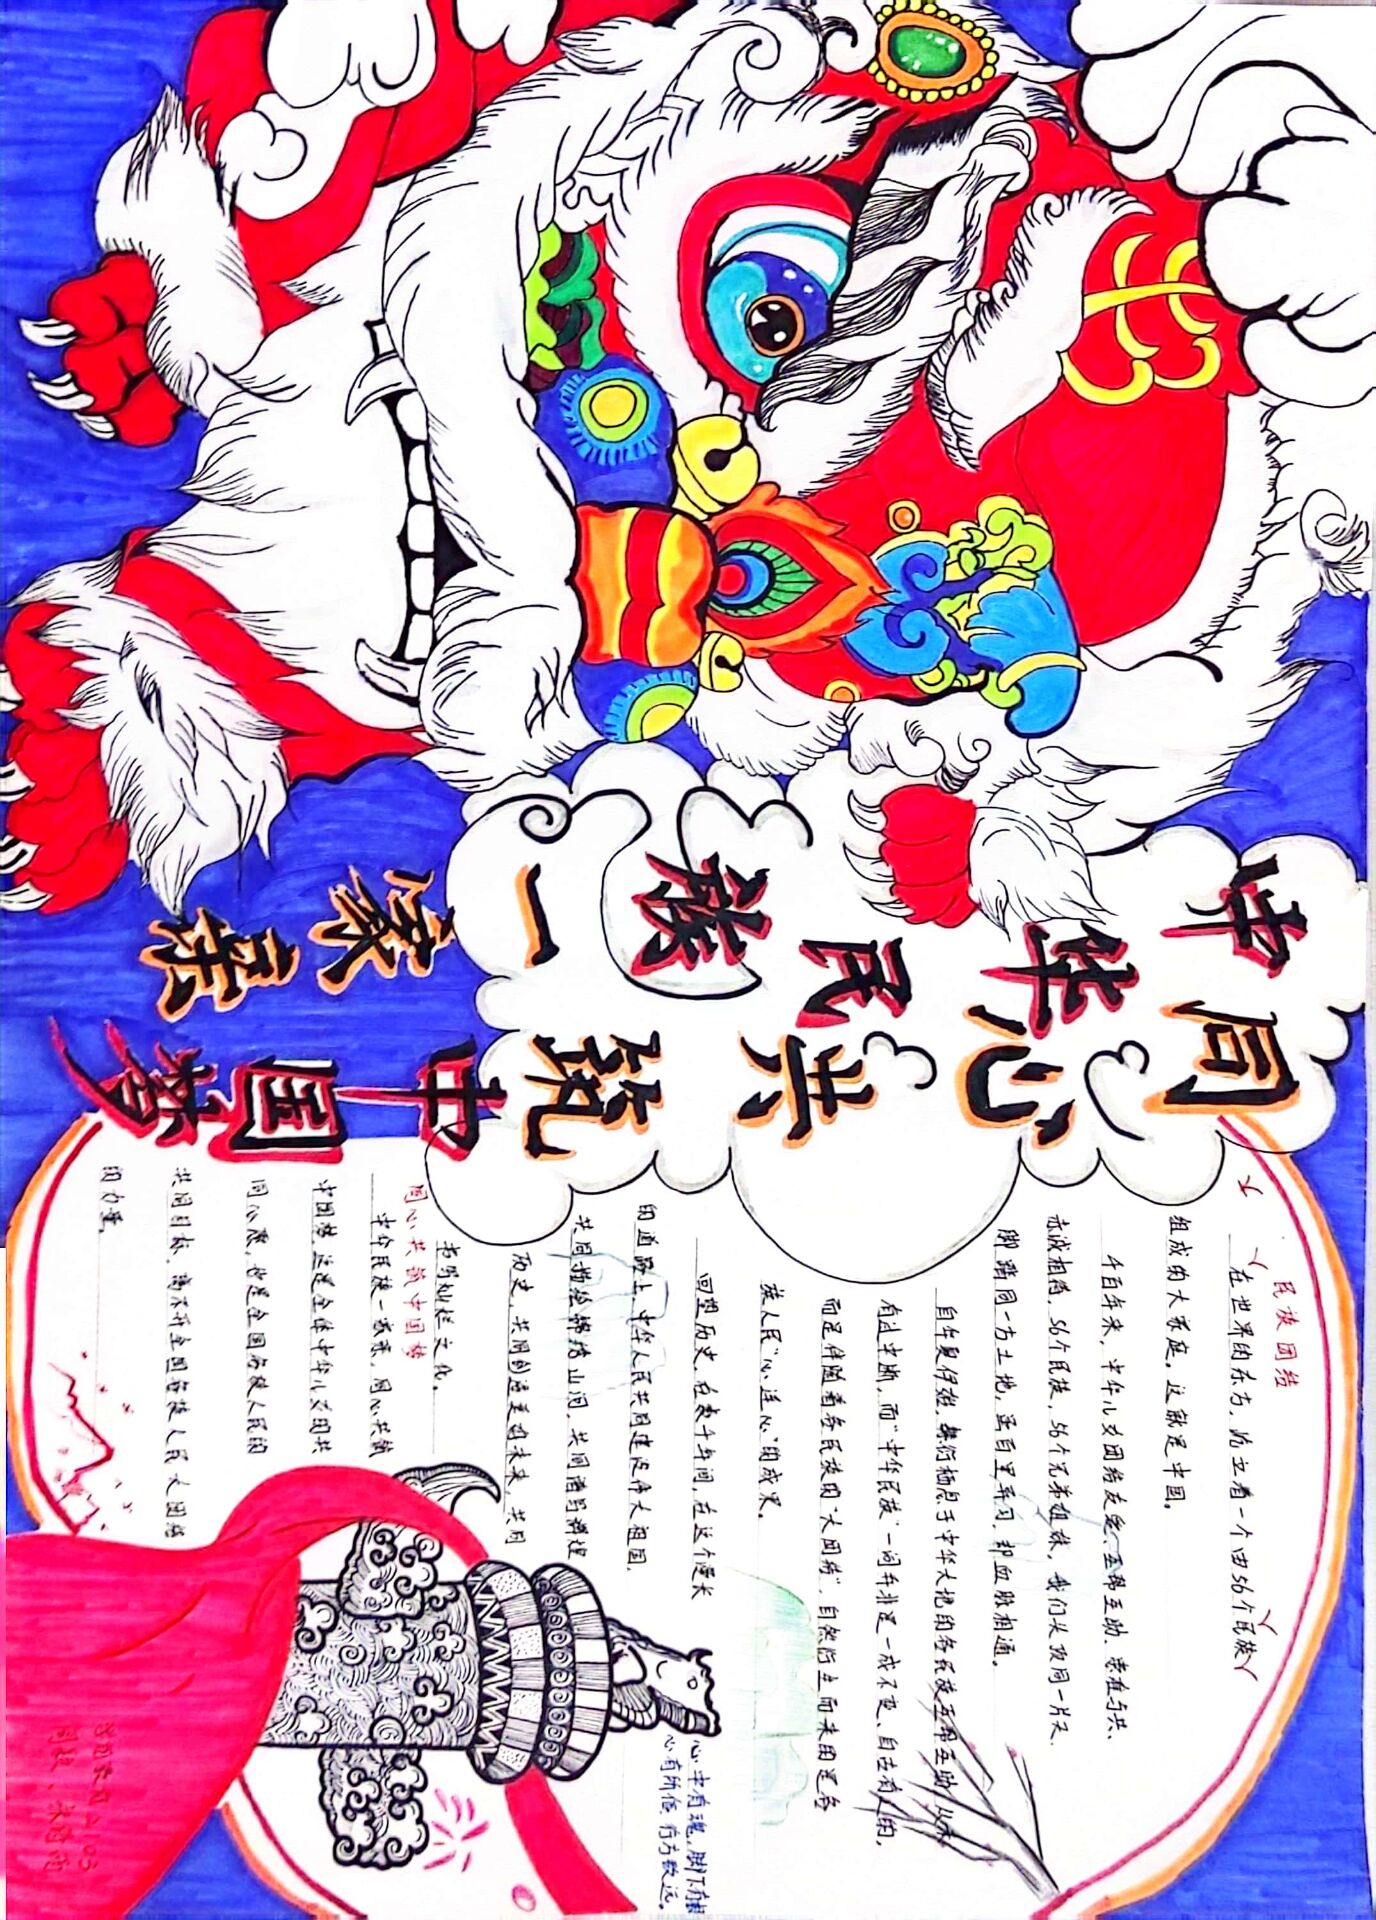 中华民族一家亲
同心共筑中国梦
民族团结
在世界的东方,屹立着一个由56个民族
组成的大家庭。这就是中国。
千百年来,中华儿女团结友爱、互帮互助、荣辱与共、
赤诚相待,56个民族,56个兄弟姐妹,我们头顶同一片天
脚踏同一方土地,虽百里异习,却血脉相通。
自华夏伊始,繁衍栖息于中华大地的各民族互帮互助从未
有过中断,而“中华民族”一词并非是一成不变、自古有之的,
而是伴随着各民族的“大团结”,自然衍生而来是各
族人民“心连心”的成果。
回望历史,在千年间,在这个漫长
的道路上,中华人民共同建设伟大祖国,
共同描绘锦绣山河,共同谱写辉煌
历史,共同创造美好未来,共同
书写灿烂文化。
同心共筑中国梦
中华民族一家亲,同心共筑
中国梦,这是全体中华儿女的共
同心愿,也是全国各族人民的
共同目标,离不开全国各族人民大团结
的力量。
心中有魂,脚下有根
心有所信,行方致远。